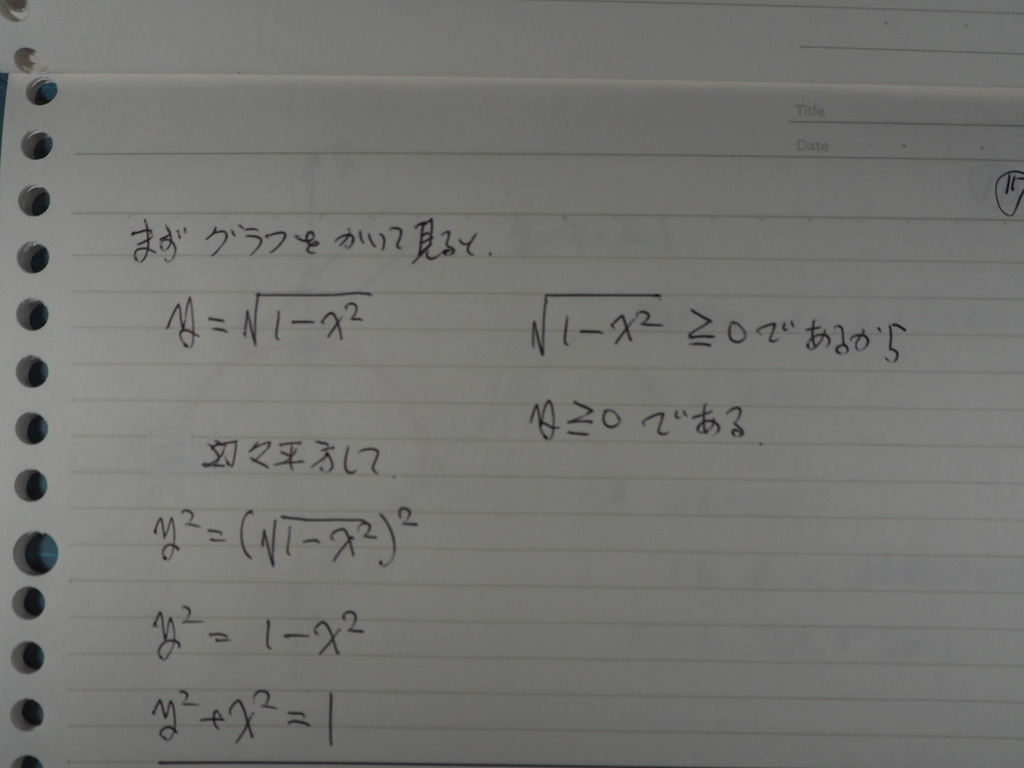 Title
Date
⑰
まず グラフを かいて 見ると.
y = √(1-x²)
√(1-x²) ≧ 0 であるから
y ≧ 0 である.
辺々平方して
y² = (√(1-x²))²
y² = 1-x²
y² + x² = 1